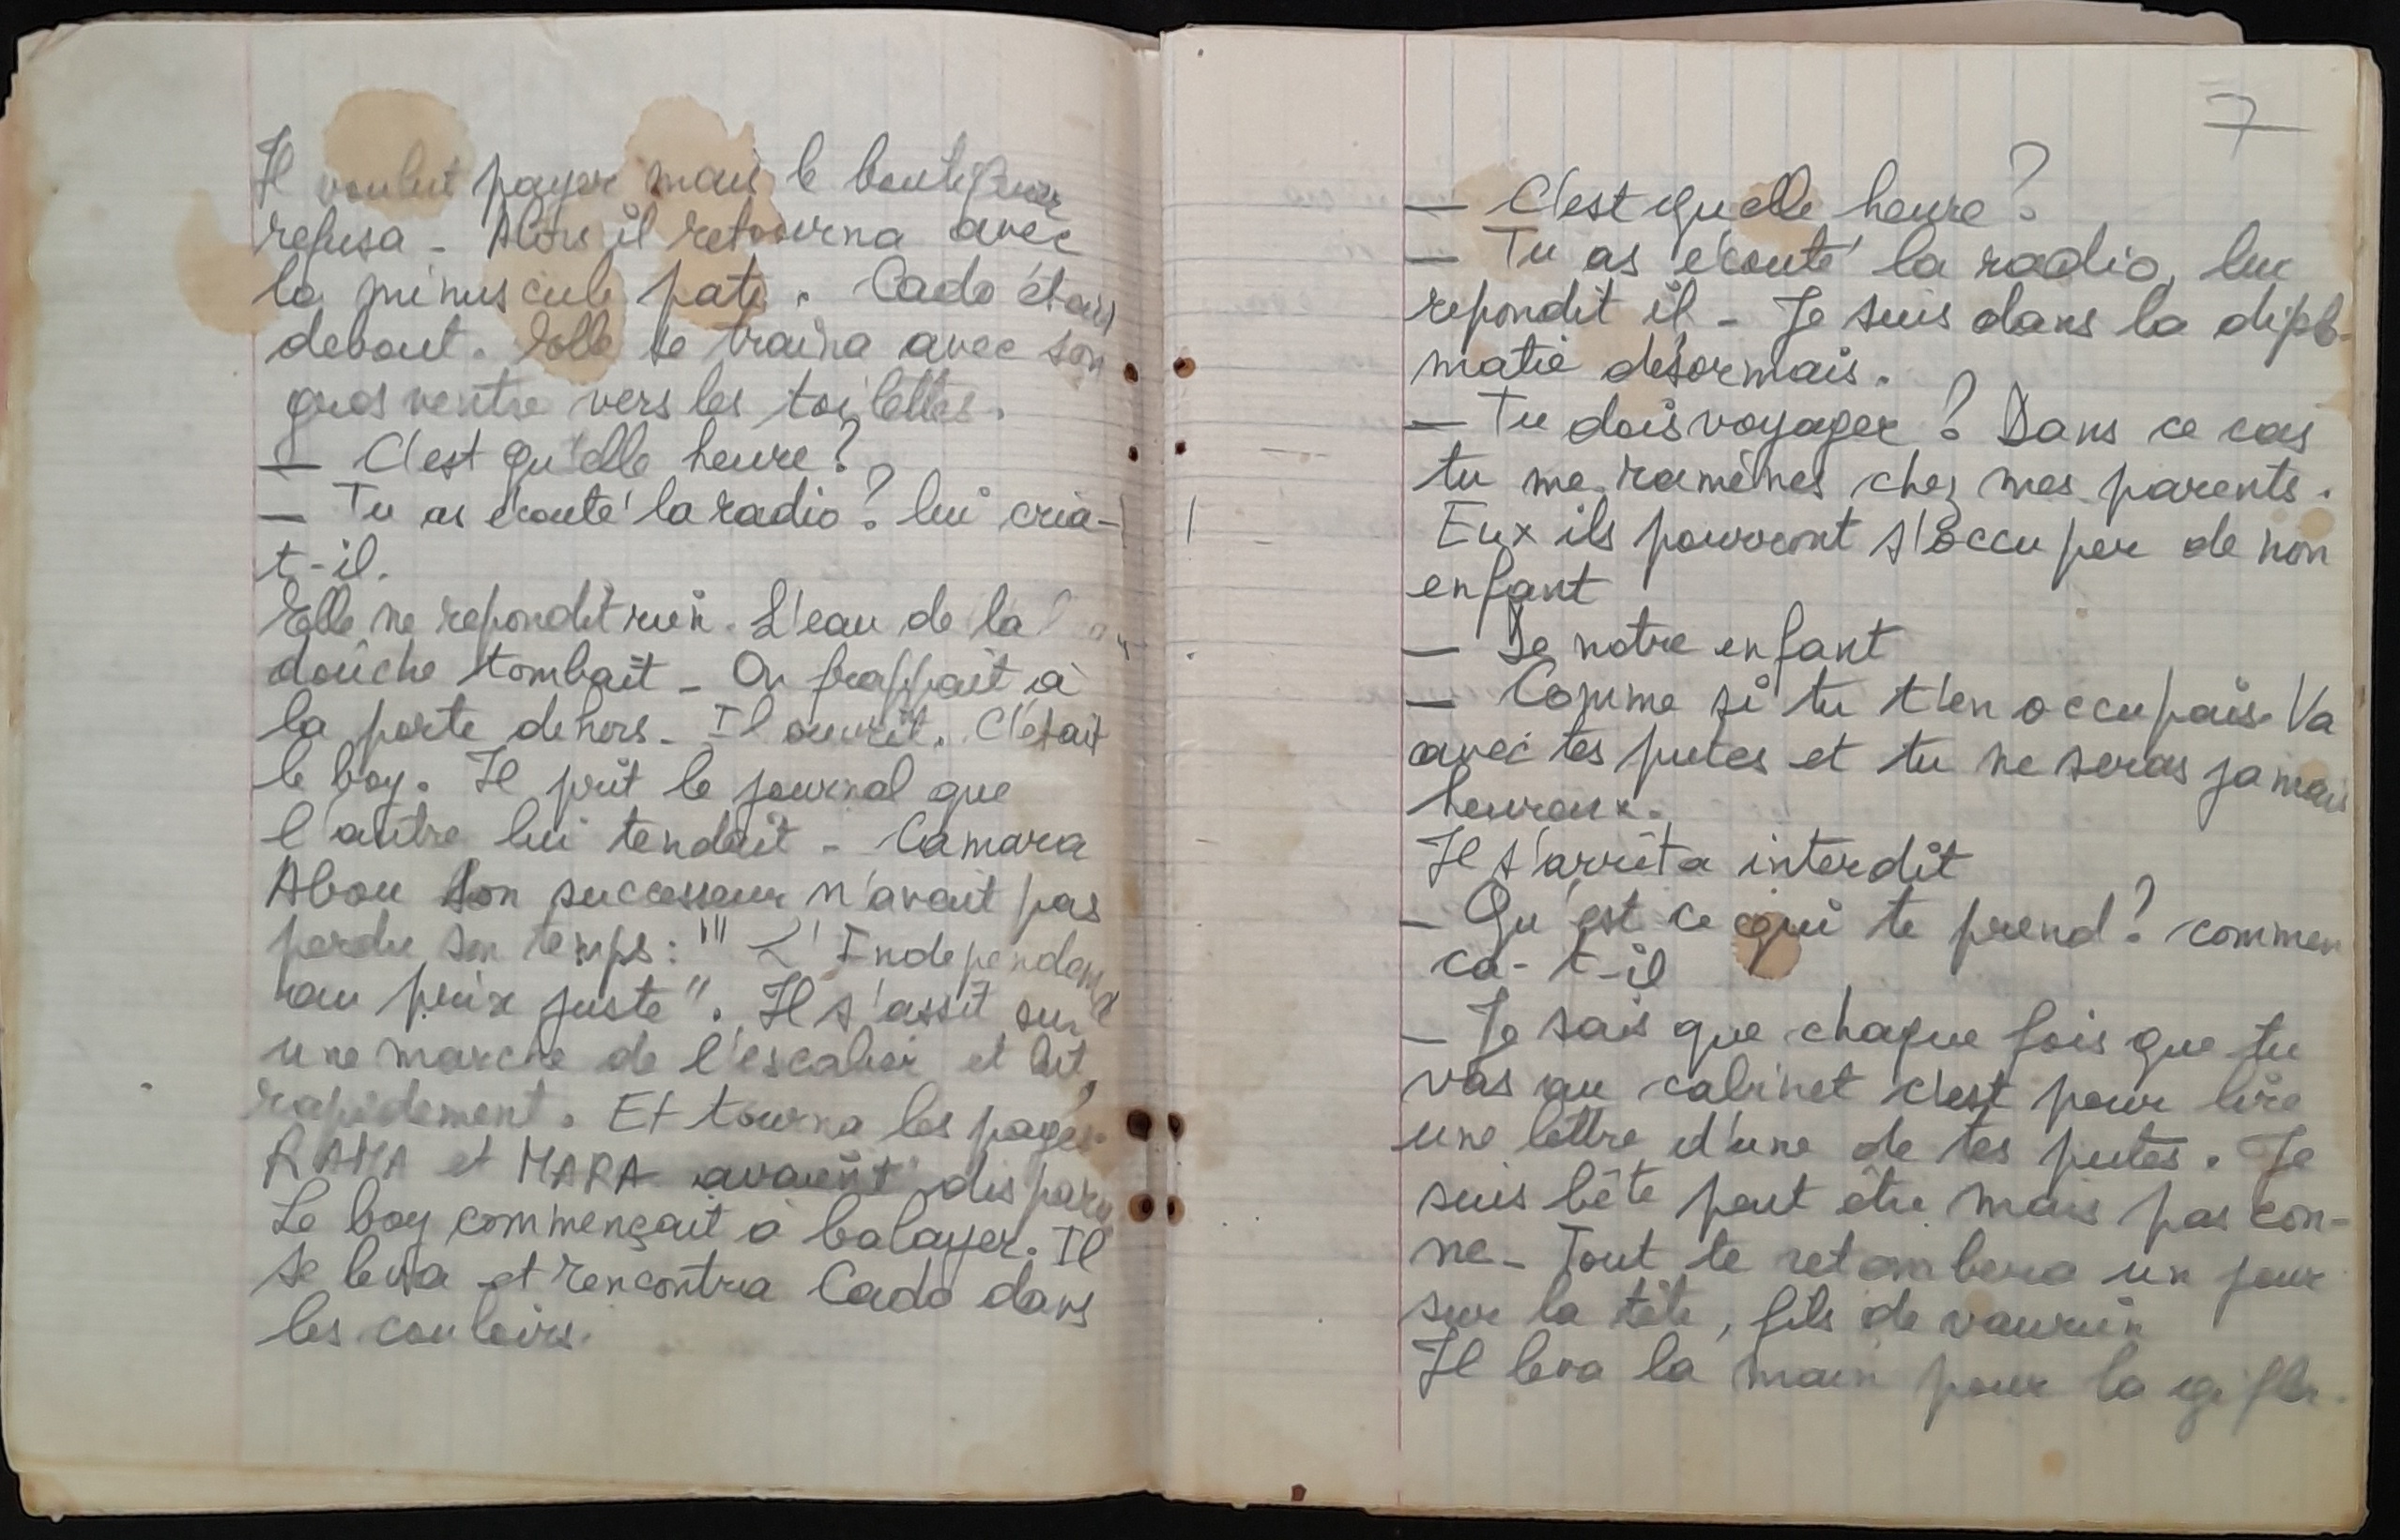 Il voulut payer mais le boutiquier
refusa - Alors il retourna avec
la minuscule pate. Cado était
debout. Elle se traina avec son
gros ventre vers les toilettes.
— C'est qu'elle heure ?
— Tu as écouté la radio ? lui cria-
t-il.
Elle ne repondit rien. L'eau de la
douche tombait - On frappait à
la porte dehors - Il ouvrit. C'était
le boy. Il prit le journal que
l'autre lui tendait - Camara
Abou son successeur n'avait pas
perdu son temps : "L'Independance
au prix juste". Il s'assit sur
une marche de l'escalier et lut
rapidement. Et tourna les pages.
RAMA et MARA avaient disparu
Le boy commençait à balayer. Il
se leva et rencontra Cado dans
les couloirs.
7
— C'est qu'elle heure ?
— Tu as écouté la radio, lui
repondit il - Je suis dans la diplo-
matie désormais.
— Tu dois voyager ? Dans ce cas
tu me ramènes chez mes parents.
Eux ils pourront s'occuper de mon
enfant
— De notre enfant
— Comme si tu t'en occupais. Va
avec tes putes et tu ne seras jamais
heureux.
Il s'arrêta interdit
— Qu'est ce qui te prend ? commen
ca - t-il
— Je sais que chaque fois que tu
vas au cabinet c'est pour lire
une lettre d'une de tes putes. Je
suis bête peut être mais pas con-
ne - Tout te retombera un jour
sur la tête, fils de vaurien
Il leva la main pour la gifler.